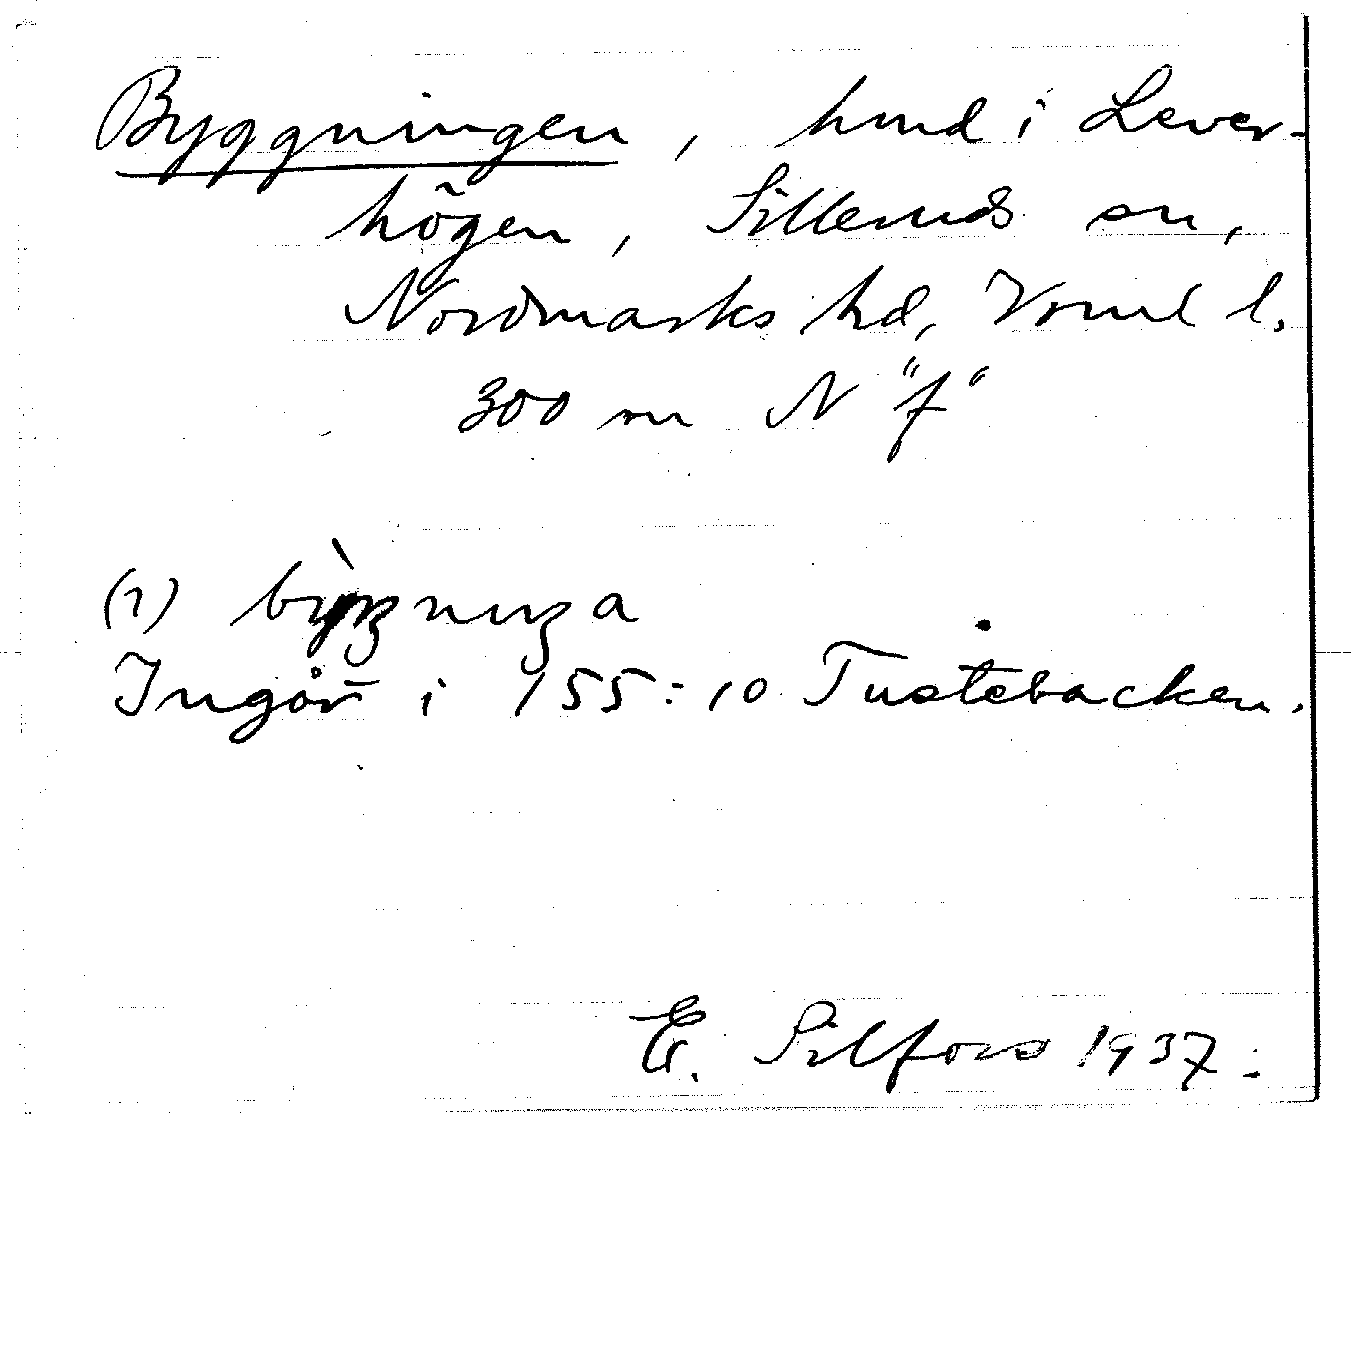 Byggningen, hmd i Lever-
högen, Silleruds sn,
Nordmarks hd, Vrml l.
300 m N "f"
(1)
Ingår i 155:10 Tustebacken.
E. Silfors 1937.